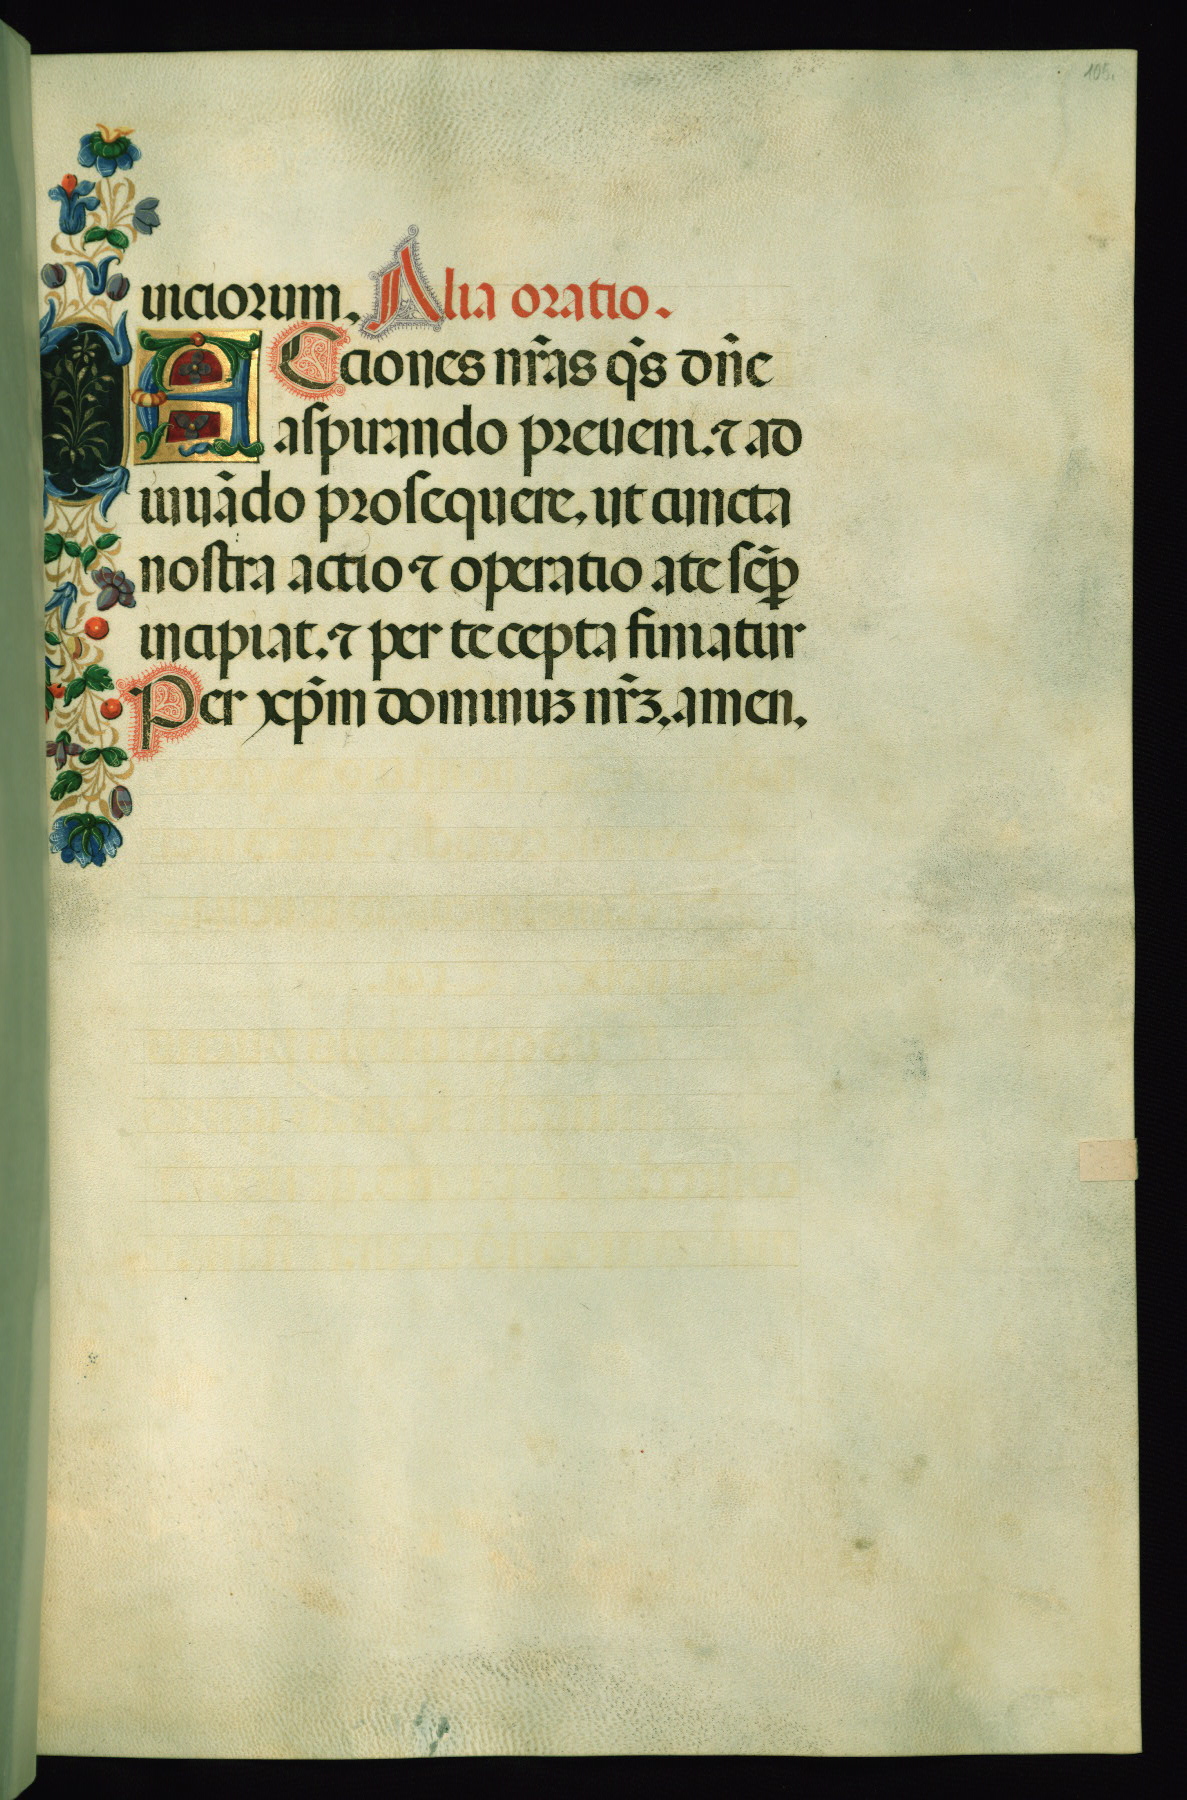 105.
uiciorum. Alia oratio.
ACciones nr̃as q̃s dñe
aſpirando preueni. ⁊ ad
iuuãdo proſequere. ut cuncta
noſtra actio ⁊ operatio a te ſẽp̱
incipiat. ⁊ per te cepta finiatur
Per xp̃m dominuꝫ nr̃ꝫ. amen.